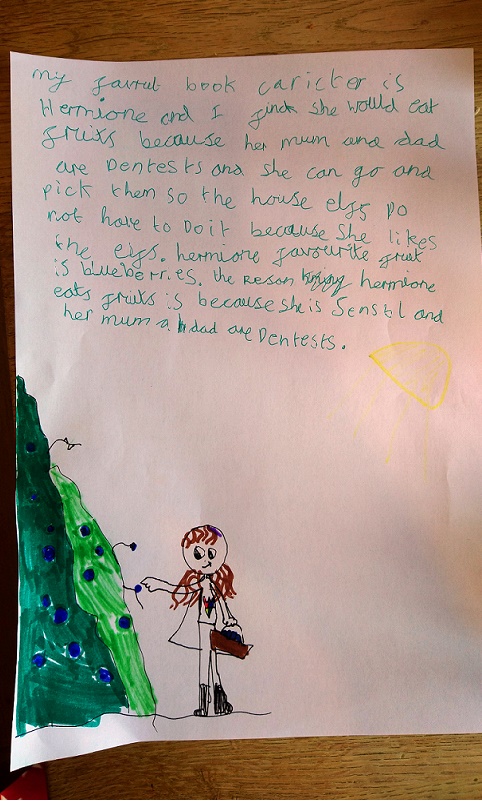 my favrut book caricter is
Hermione and I finck she would eat
fruits because her mum and dad
are Dentests and she can go and
pick them so the house elfs Do
not have to Do it because she likes
the elfs. hermione favourite fruit
is blueberries. the reson hermione
eats fruits is because she is Sensbl and
her mum a dad are Dentests.